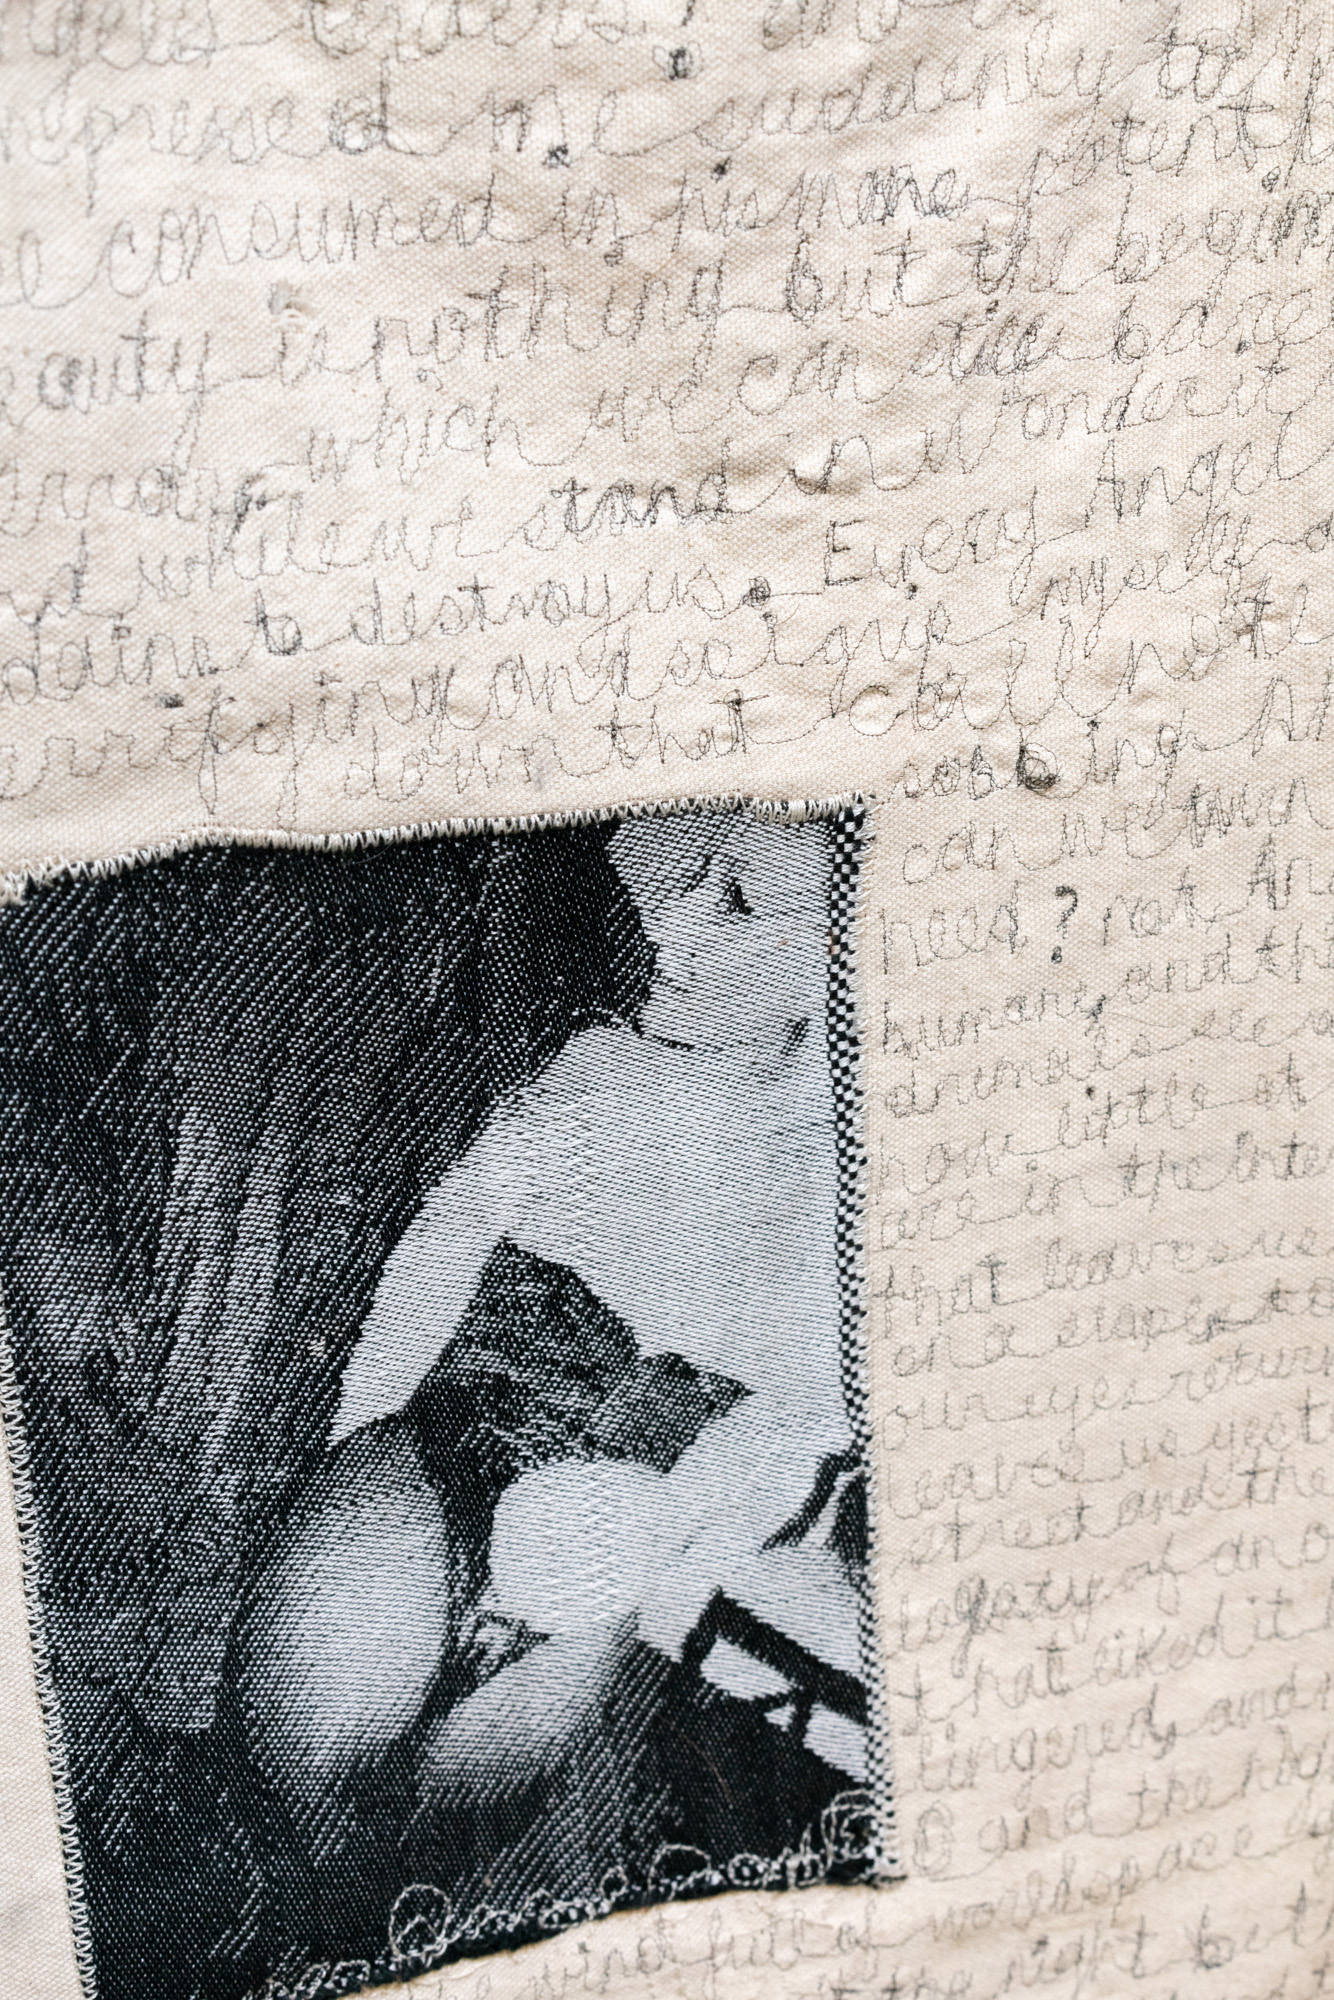 pressed me suddenly to
consumed in his more potent
eauty is nothing but the begin
which we can still bare
and while we stand in wonder it
to destroy us. Every Angel
errifying and so i grip myself
down that call note
sobbing Ah
can we turn
need? not An
humans, and th
animals see
how little at
are in the inter
that leaves us
and a slope to
our eyes return
leaves us yest
street and the
logalty of an o
that liked it
lingered, and
O and the nigh
wind full of worldspace
the night